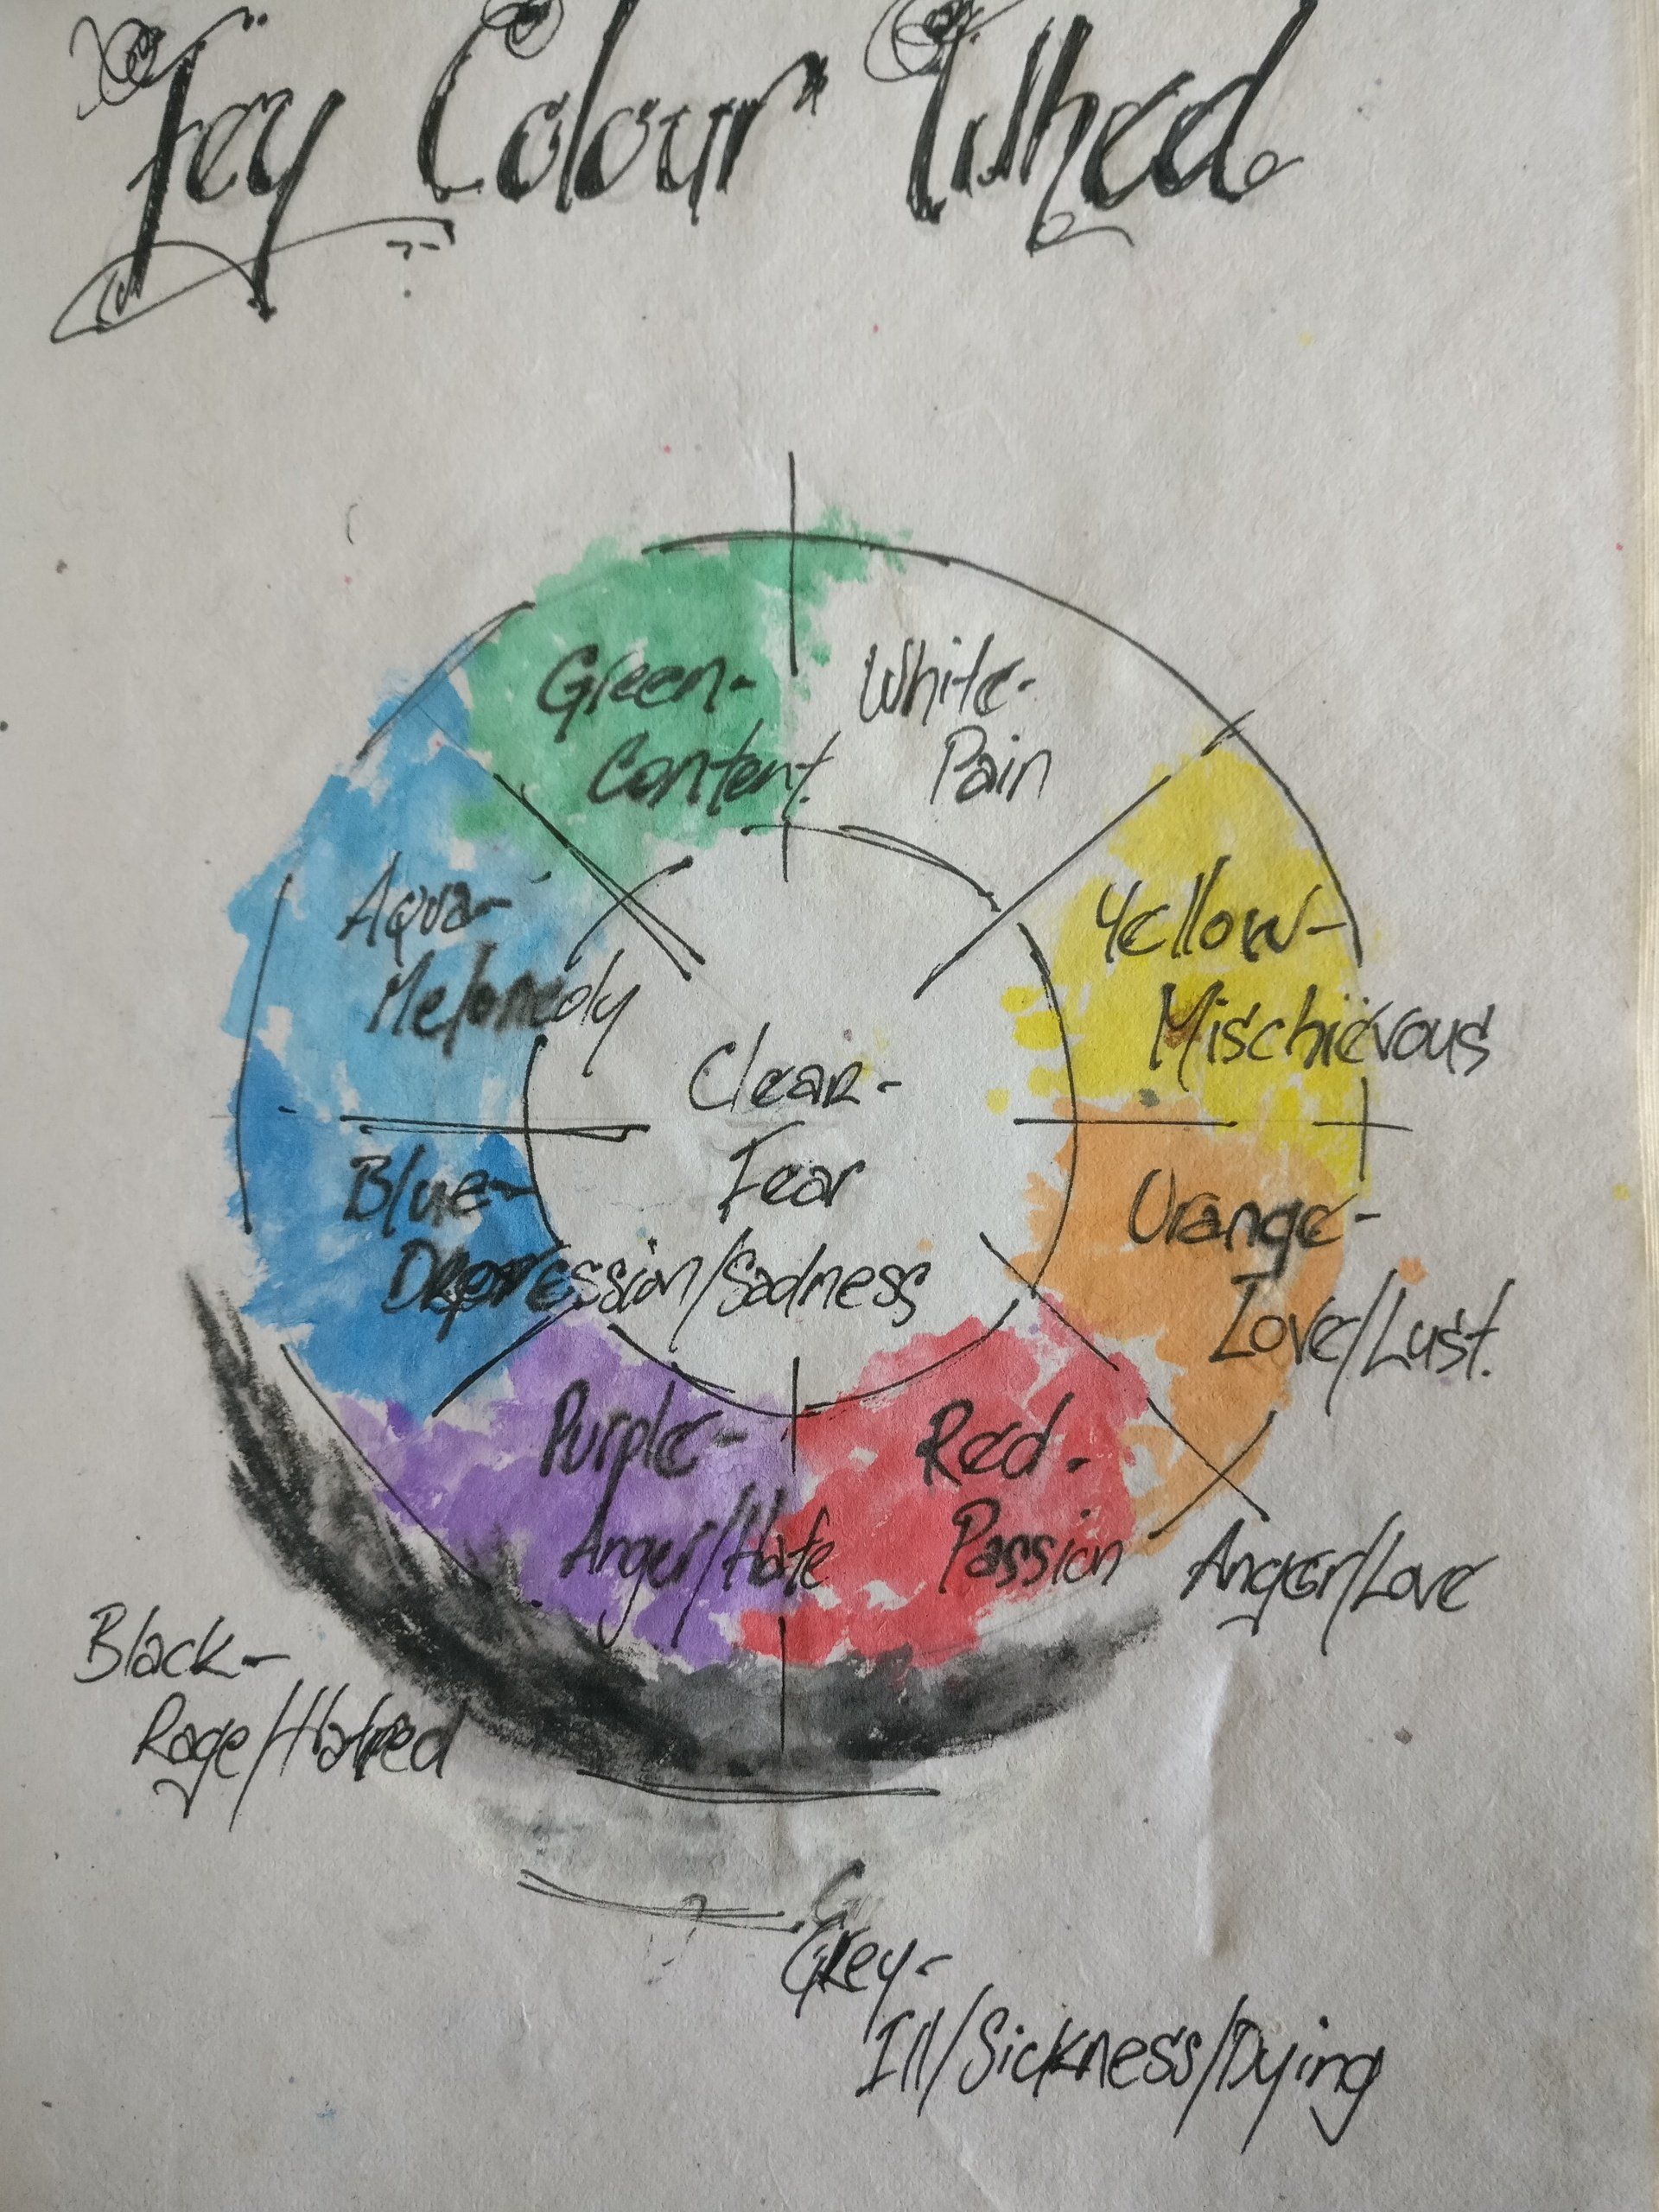 Fey Colour Wheel
Green-
Content.
White-
Pain
Aqua-
Melomedy
Yellow-
Mischievous
Clear-
Fear
Blue-
Depression/Sadness
Orange-
Love/Lust.
Purple-
Anger/Hate
Red-
Passion
Anger/Love
Black-
Rage/Hatred
Grey-
Ill/Sickness/Dying